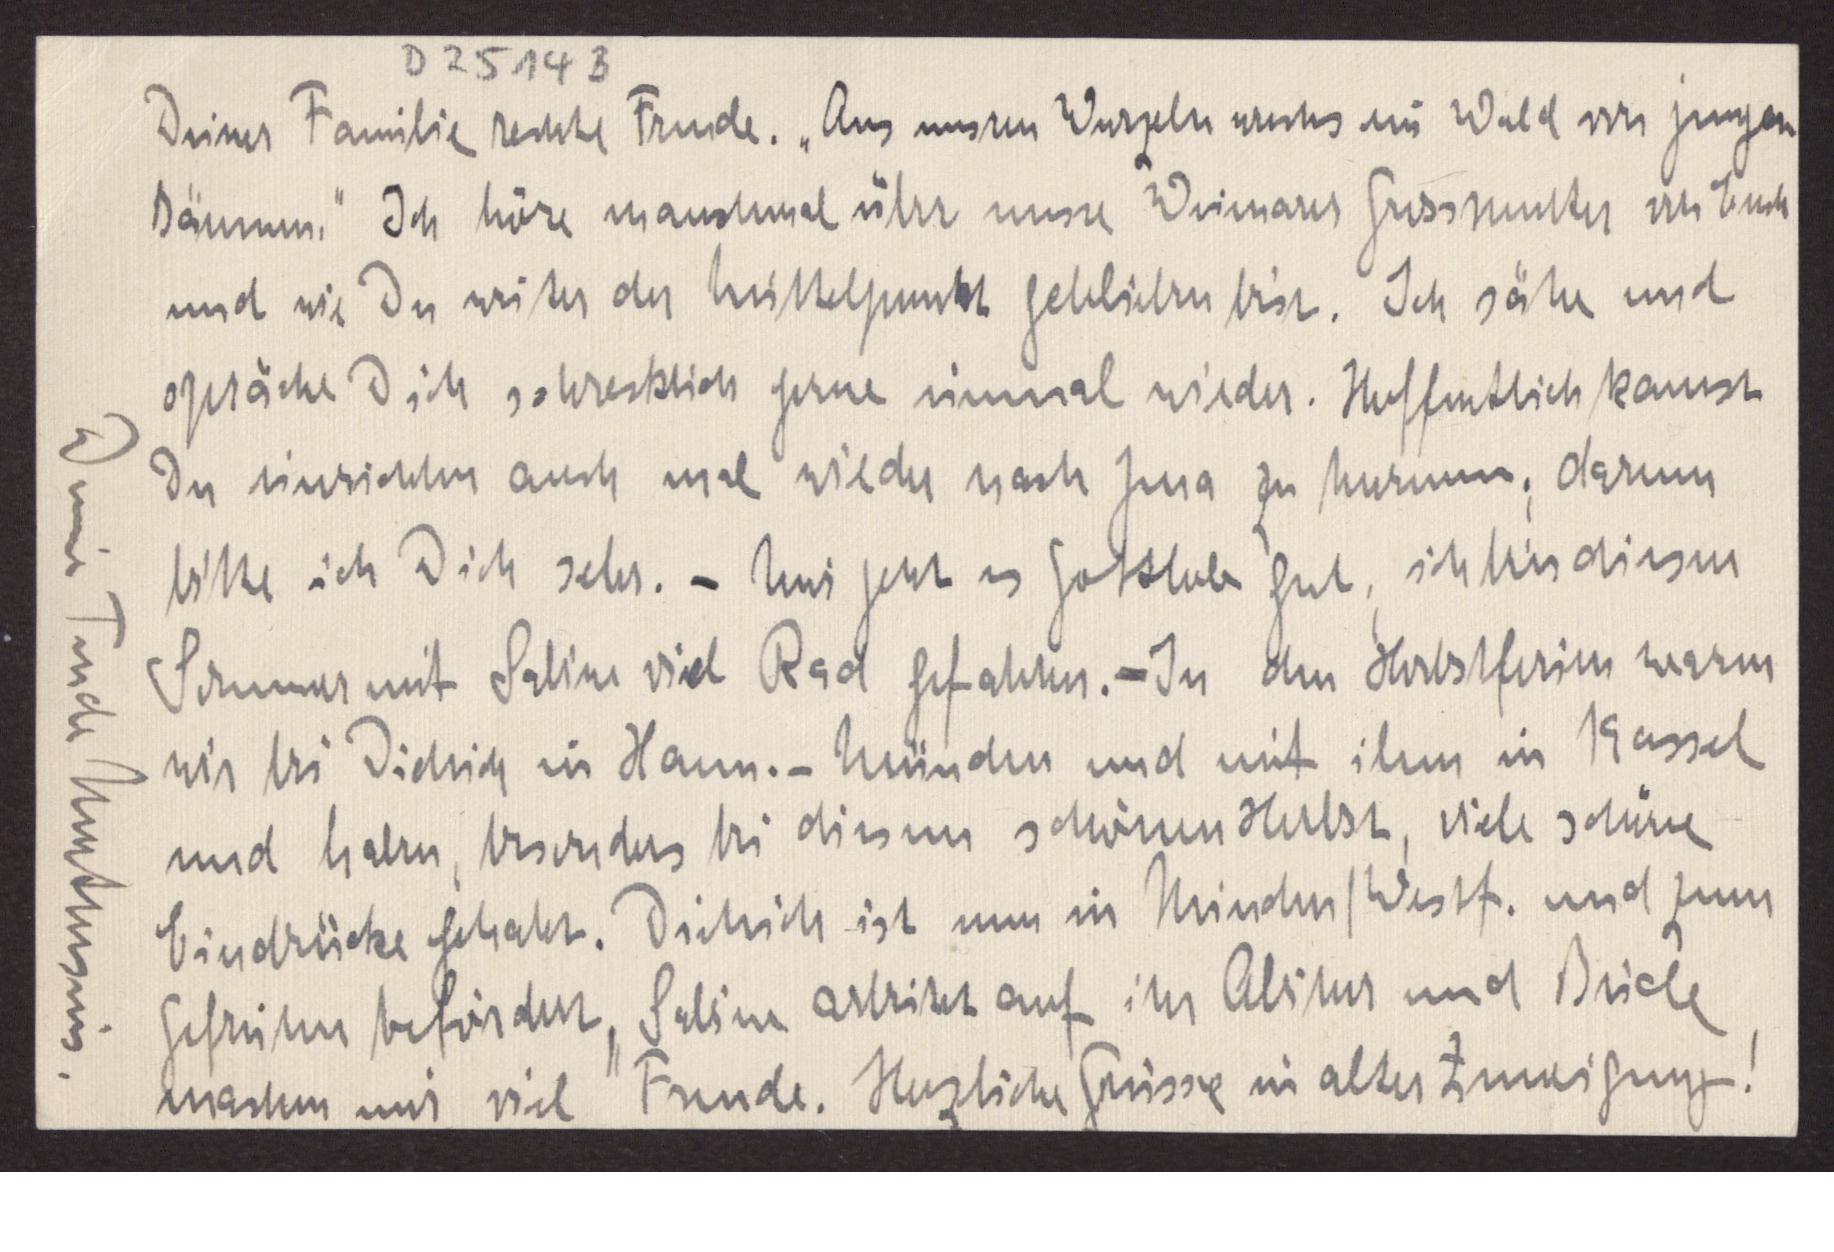 D 25143
Deiner Familie rechte Freude. „Aus unsren Wurzeln wuchs ein Wald von jungen
Bäumen." Ich höre manchmal über unsre Weimarer Grossmutter von Euch
und wie Du weiter der Mittelpunkt geblieben bist. Ich sähe und
spräche Dich schrecklich gerne einmal wieder. Hoffentlich kannst
Du einrichten auch mal wieder nach Jena zu kommen, darum
bitte ich Dich sehr. – Mir geht es gottlob gut, ich bin diesen
Sommer mit Sabine viel Rad gefahren. – In den Herbstferien waren
wir bei Dietrich in Hann.-Münden und mit ihm in Kassel
und haben, besonders bei diesem schönen Herbst, viele schöne
Eindrücke gehabt. Dietrich ist nun in Minden/Westf. und zum
Gefreiten befördert, Sabine arbeitet auf ihr Abitur und Beide
machen mir viel Freude. Herzliche Grüsse in alter Zuneigung!
Deine